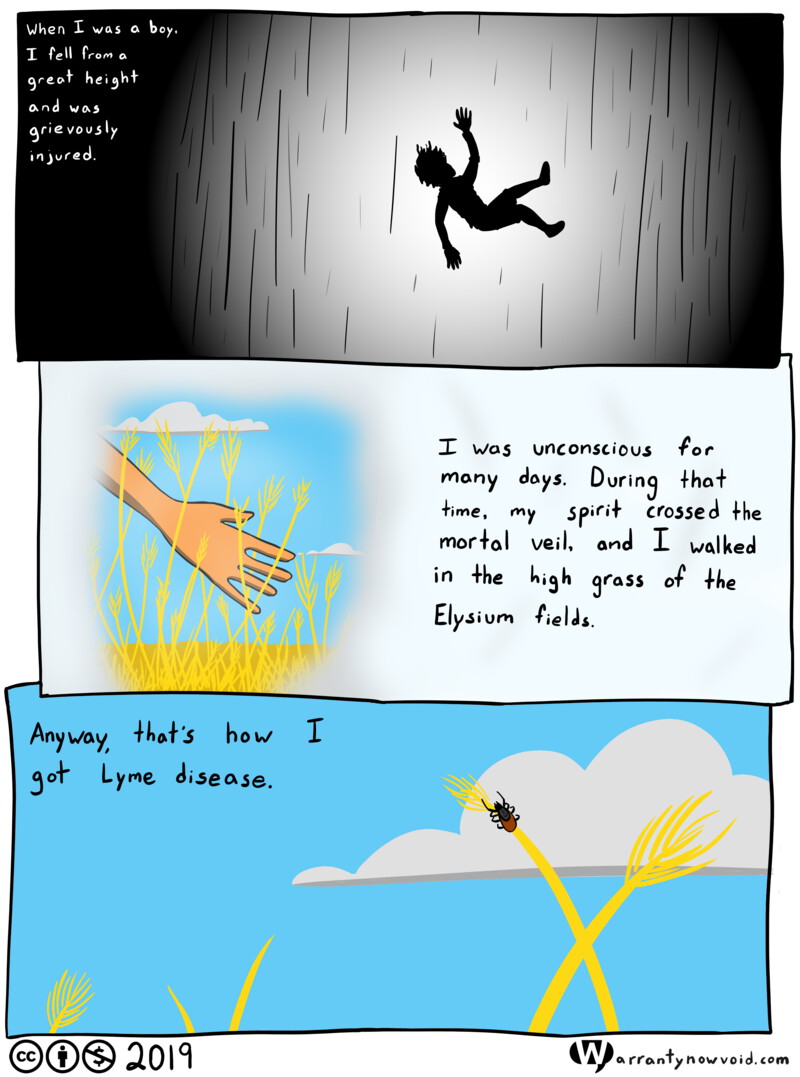 When I was a boy,
I fell from a
great height
and was
grievously
injured.
I was unconscious for
many days. During that
time, my spirit crossed the
mortal veil, and I walked
in the high grass of the
Elysium fields.
Anyway, that's how I
got Lyme disease.
cc 2019
Warrantynowvoid.com